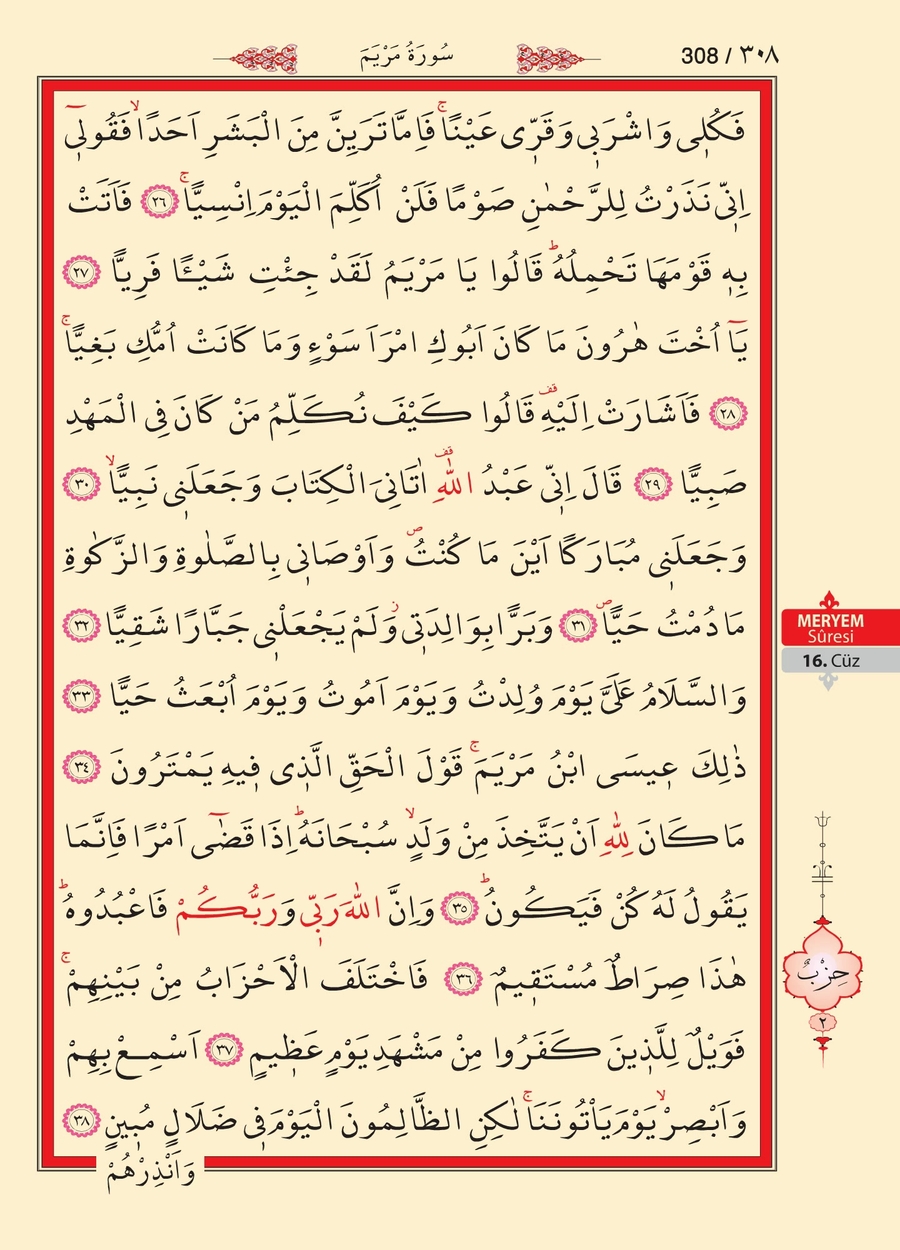 سُورَةُ مَرْيَمَ
308 / ٣٠٨
فَكُلٖى وَاشْرَبٖى وَقَرّٖى عَيْنًاۚ فَاِمَّا تَرَيِنَّ مِنَ الْبَشَرِ اَحَدًاۙ فَقُولٖىٓ
اِنّٖى نَذَرْتُ لِلرَّحْمٰنِ صَوْمًا فَلَنْ اُكَلِّمَ الْيَوْمَ اِنْسِيًّاۚ ٢٦ فَاَتَتْ
بِهٖ قَوْمَهَا تَحْمِلُهُۜ قَالُوا يَا مَرْيَمُ لَقَدْ جِئْتِ شَيْـًٔا فَرِيًّا ٢٧
يَٓا اُخْتَ هٰرُونَ مَا كَانَ اَبُوكِ امْرَاَ سَوْءٍ وَمَا كَانَتْ اُمُّكِ بَغِيًّاۚ
٢٨ فَاَشَارَتْ اِلَيْهِࣞ قَالُوا كَيْفَ نُكَلِّمُ مَنْ كَانَ فِى الْمَهْدِ
صَبِيًّا ٢٩ قَالَ اِنّٖى عَبْدُ اللّٰهِࣞ اٰتَانِىَ الْكِتَابَ وَجَعَلَنٖى نَبِيًّاۙ ٣٠
وَجَعَلَنٖى مُبَارَكًا اَيْنَ مَا كُنْتُࣕ وَاَوْصَانٖى بِالصَّلٰوةِ وَالزَّكٰوةِ
مَا دُمْتُ حَيًّاࣕ ٣١ وَبَرًّا بِوَالِدَتٖىؗ وَلَمْ يَجْعَلْنٖى جَبَّارًا شَقِيًّا ٣٢
وَالسَّلَامُ عَلَىَّ يَوْمَ وُلِدْتُ وَيَوْمَ اَمُوتُ وَيَوْمَ اُبْعَثُ حَيًّا ٣٣
ذٰلِكَ عٖيسَى ابْنُ مَرْيَمَۚ قَوْلَ الْحَقِّ الَّذٖى فٖيهِ يَمْتَرُونَ ٣٤
مَا كَانَ لِلّٰهِ اَنْ يَتَّخِذَ مِنْ وَلَدٍۙ سُبْحَانَهُۜ اِذَا قَضٰٓى اَمْرًا فَاِنَّمَا
يَقُولُ لَهُ كُنْ فَيَكُونُۜ ٣٥ وَاِنَّ اللّٰهَ رَبّٖى وَرَبُّكُمْ فَاعْبُدُوهُۜ
هٰذَا صِرَاطٌ مُسْتَقٖيمٌ ٣٦ فَاخْتَلَفَ الْاَحْزَابُ مِنْ بَيْنِهِمْۚ
فَوَيْلٌ لِلَّذٖينَ كَفَرُوا مِنْ مَشْهَدِ يَوْمٍ عَظٖيمٍ ٣٧ اَسْمِعْ بِهِمْ
وَاَبْصِرْۙ يَوْمَ يَاْتُونَنَاۚ لٰكِنِ الظَّالِمُونَ الْيَوْمَ فٖى ضَلَالٍ مُبٖينٍ ٣٨
وَاَنْذِرْهُمْ
MERYEM
Sûresi
16. Cüz
حِزْبٌ
٢